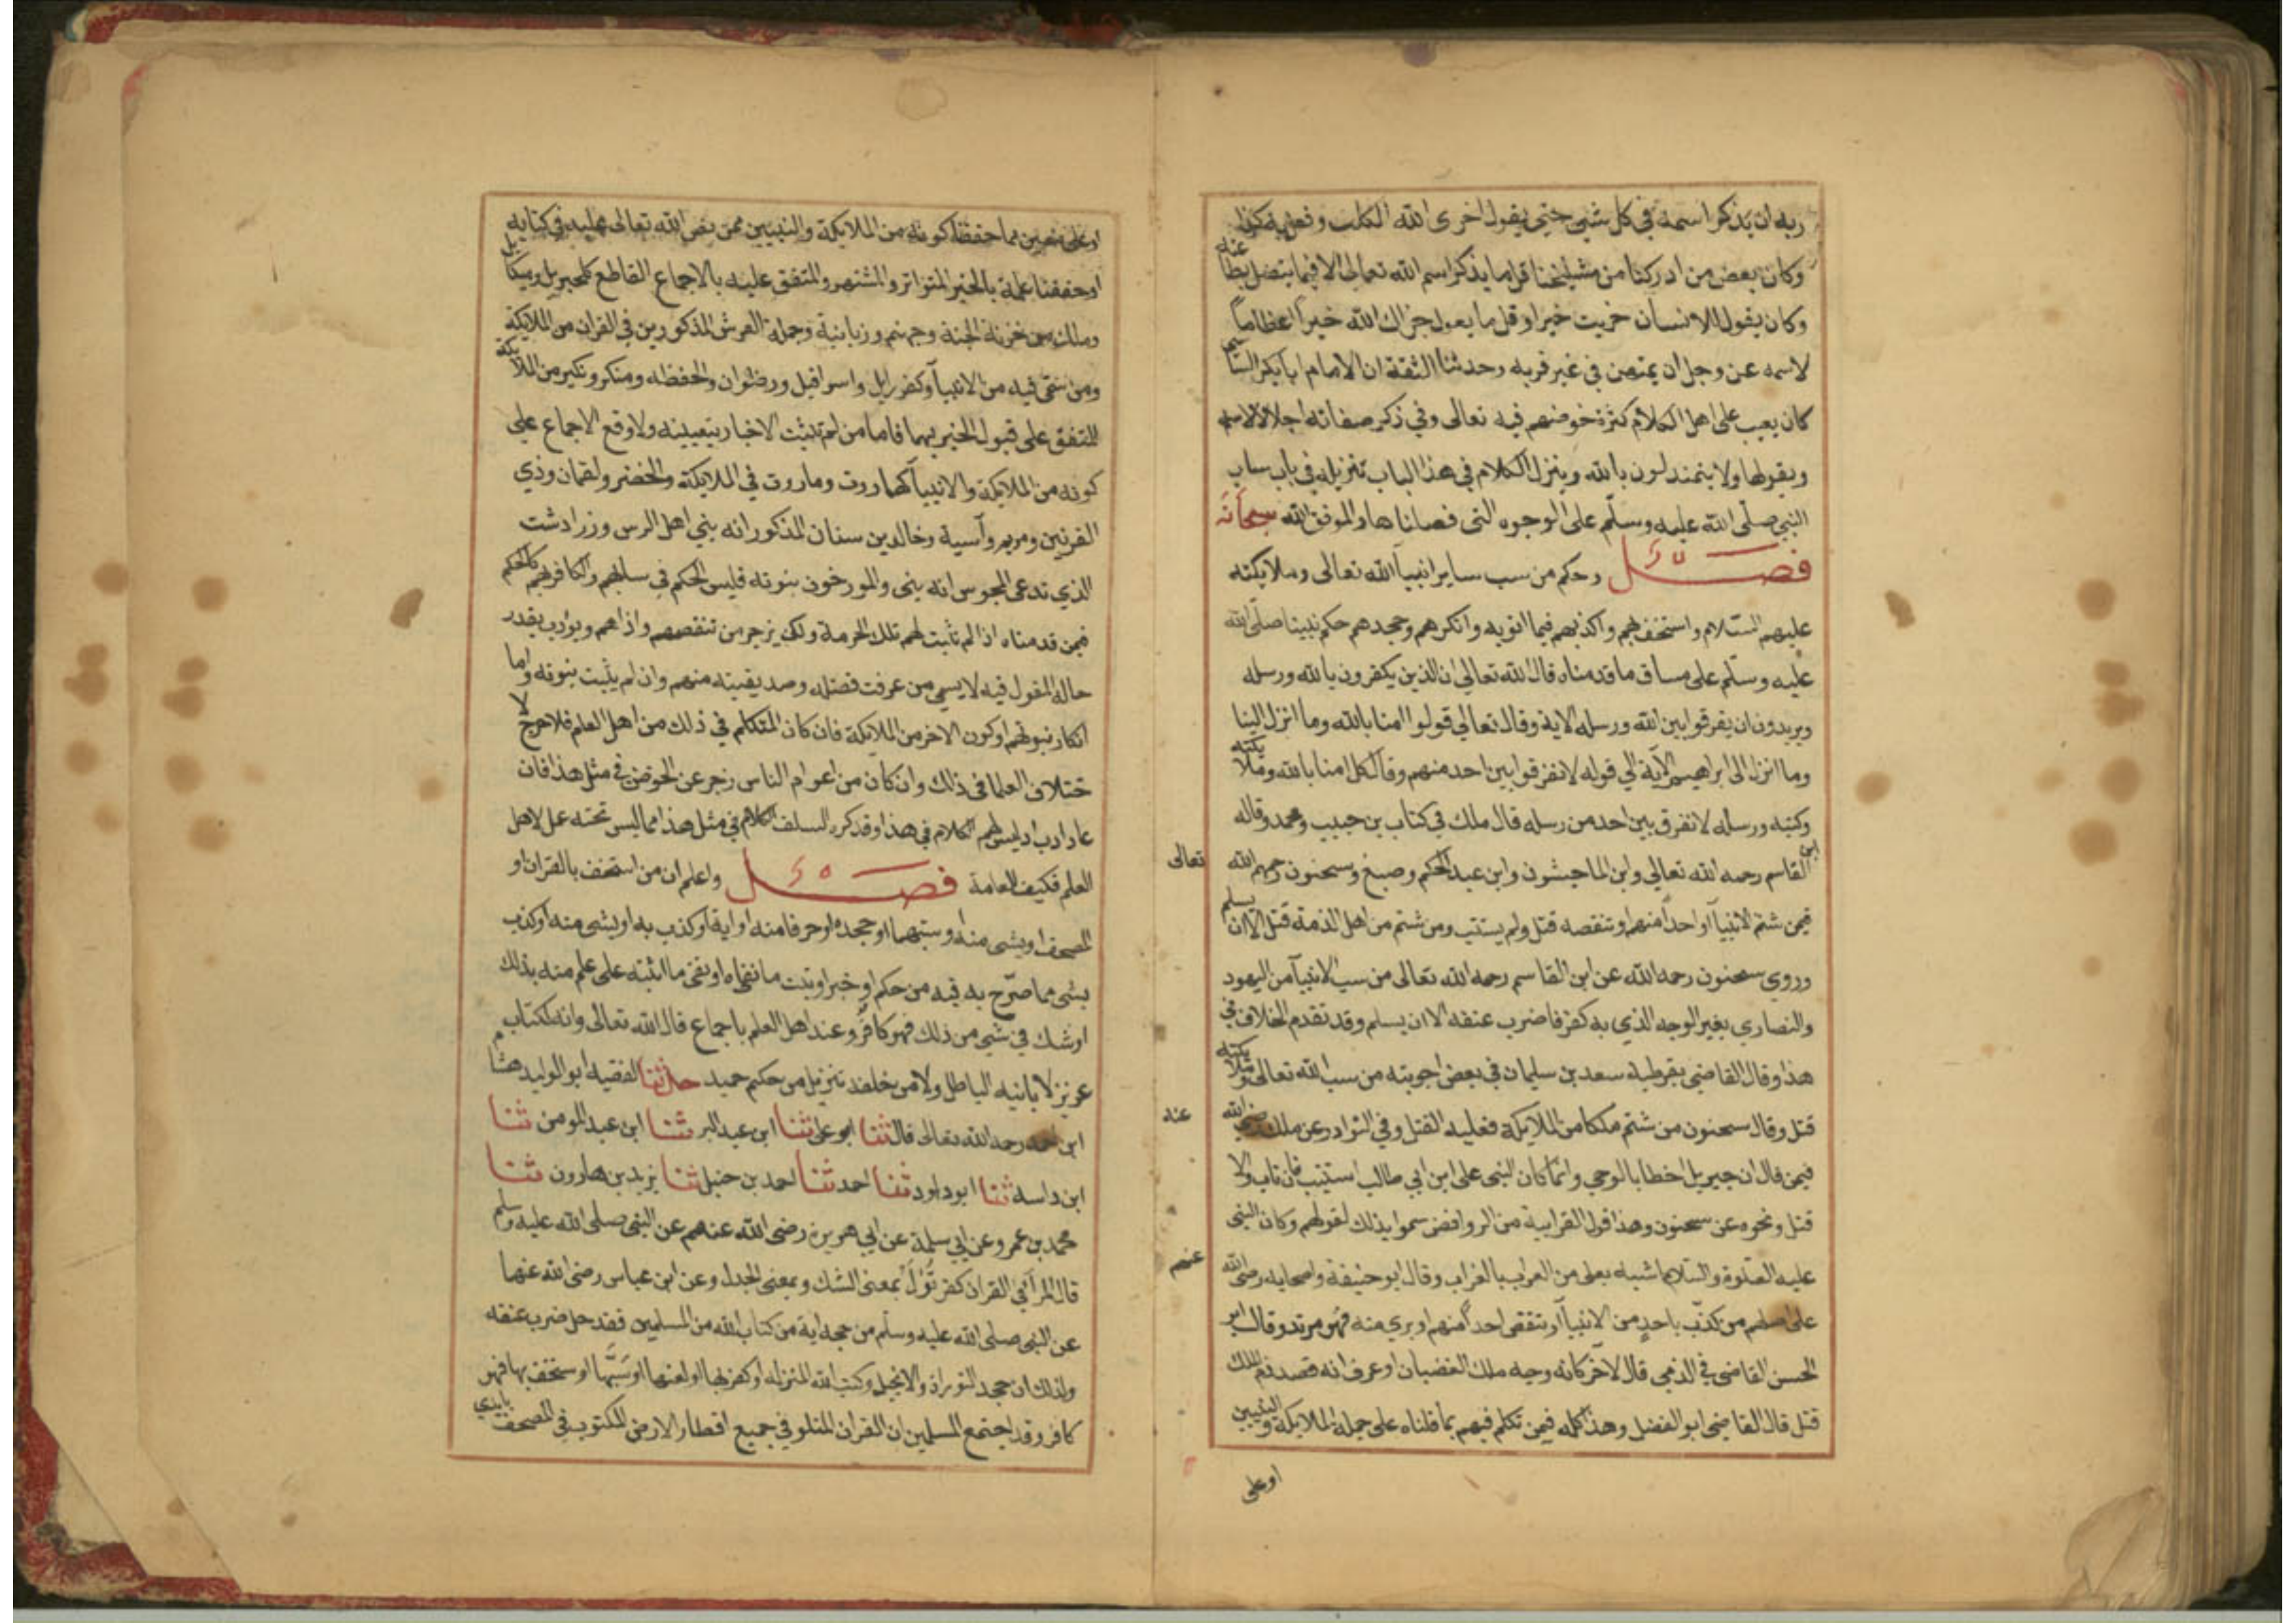 ربه ان يذكر اسمه في كل شيء حتى يقول اخزى الله الكلب وفعل به كذا
وكان بعض من ادركنا من مشايخنا قل ما يذكر اسم الله تعالى الا فيما يتصل بطا عته
وكان يقول للانسان جزيت خيرا وقل ما يقول جزاك الله خيرا اعظاما
لاسمه عز وجل ان يمتهن في غير قربه وحدثنا الثقة ان الامام ابا بكر الشا شي
كان يعيب على اهل الكلام كثرة خوضهم فيه تعالى وفي ذكر صفاته اجلالا لاسمه
ويقول ها ولا يتمندلون بالله وينزل الكلام في هذا الباب تنزيله في باب ساب
النبي صلى الله عليه وسلم على الوجوه التي فصلناها والموفق الله سبحانه
فصل وحكم من سب ساير انبيآ الله تعالى وملايكته
عليهم السلام واستخف بهم واكذبهم فيما اتو به وانكرهم وجحدهم حكم نبينا صلى الله
عليه وسلم على مساق ما قدمناه قال الله تعالى ان الذين يكفرون بالله ورسله
ويريدون ان يفرقوا بين الله ورسله الاية وقال تعالى قولوا امنا بالله وما انزل الينا
وما انزل الى ابراهيم الآية الي قوله لا نفرقوا بين احد منهم وقال كل امنا بالله وملا يكته
وكتبه ورسله لا نفرق بين احد من رسله قال ملك في كتاب بن حبيب ومحمد وقاله
ابن القاسم رحمه الله تعالى وابن الماجشون وابن عبد الحكم وصبغ وسحنون رحمهم الله تعالى
فيمن شتم الانبيآ او احداً منهم او تنقصه قتل ولم يستتب ومن شتم من اهل الذمة قتل الا ان يسلم
وروي سحنون رحمه الله عن ابن القاسم رحمه الله تعالى من سب الانبيآ من اليهود
والنصاري بغير الوجه الذي به كفر فاضرب عنقه الا ان يسلم وقد تقدم الخلاف في
هذا وقال القاضي بقرطبة سعد بن سليمان في بعض اجوبته من سب الله تعالى وملا يكته
قتل وقال سحنون من شتم ملكا من الملايكة فعليه القتل وفي النوادر عن ملك رضي الله عنه
فيمن قال ان جبريل اخطا بالوحي وانما كان النبي على ابن ابي طالب استتيب فان تاب والا
قتل ونحوه عن سحنون وهذا قول الغرابية من الروافض سموا بذلك لقولهم وكان النبي
عليه الصلوة والسلام اشبه بعلى من الغراب بالغراب وقال ابو حنيفة واصحابه رضى الله عنهم
على اصلهم من كذّب باحد من الانبيآ او تنقص احداً منهم او بري منه فهو مرتد وقال ابو
الحسن القاضى في الذي قال لآخر كانه وجه ملك الغضبان او عرف انه قصد ذم الملك
قتل قال القاضي ابو الفضل وهذا كله فيمن تكلم فيهم بما قلناه على جملة الملايكة والنبيين
او على
او على معين مما حققنا كونه من الملايكة والنبيين ممن نص الله تعالى عليه في كتابه
او حققنا علمه بالخبر المتواتر والمشتهر والمتفق عليه بالاجماع القاطع كجبريل وميكا يل
وملك من خزنة الجنة وجهنم وزبانية وحملة العرش المذكورين في القران من الملايكة
ومن سمّي فيه من الانبيآ وكعزرايل واسرافيل ورضوان والحفظه ومنكر ونكير من الملا يكة
المتفق على قبول الخبر بهما فاما من لم تثبت الاخبار بتعيينه ولا وقع الاجماع على
كونه من الملايكة والانبيآ كهاروت وماروت في الملايكة والخضر ولقمان وذي
القرنين ومريم وآسية وخالد بن سنان المذكور انه نبي اهل الرس وزرادشت
الذي تدعى المجوس انه نبي والمورخون بنوته فليس الحكم في سابهم والكافر بهم كالحكم
فيمن قدمناه اذ لم تثبت لهم تلك الحرمة ولكن يزجر من تنقصهم واذاهم ويؤدب بقدر
حاله المقول فيه لا سيما من عرفت فضله وصديقيته منهم وان لم يثبت بنوته واما
انكار نبوتهم او كون الاخر من الملايكة فان كان المتكلم في ذلك من اهل العلم فلا حرج لا
ختلاف العلما في ذلك وان كان من اعوام الناس زجر عن الخوض في مثل هذا فان
عاد ادب اذ ليس لهم الكلام في هذا وقد كره السلف الكلام في مثل هذا مما ليس تحته عمل لاهل
العلم فكيف للعامة فصل واعلم ان من استخف بالقران او
المصحف او بشى منه او سبهما او جحده او حرفا منه او اية او كذب به او بشى منه او كذب
بشى مما صرّح به فيه من حكم او خبر او يثبت ما نفاه او نفى ما اثبته على علم منه بذلك
او شك في شي من ذلك فهو كافر وعند اهل العلم باجماع قال الله تعالى وانه لكتاب
عزيز لا ياتيه الباطل ولا من خلفه تنزيل من حكيم حميد حدثنا الفقيه ابو الوليد هشا م
ابن احمد رحمه الله تعالى قال ثنا ابو على ثنا ابن عبد البر ثنا ابن عبد المومن ثنا
ابن داسه ثنا ابو داود ثنا احمد ثنا احمد بن حنبل ثنا يزيد بن هارون ثنا
محمد بن عمرو عن ابي سلمة عن ابي هريرة رضى الله عنهم عن النبى صلى الله عليه وسلم
قال المرآ في القران كفر تُوُّلَ بمعنى الشك وبمعنى الجدل وعن ابن عباس رضى الله عنهما
عن النبى صلى الله عليه وسلم من جحد اية من كتاب الله من المسلمين فقد حل ضرب عنقه
وكذلك ان جحد التوراة والانجيل وكتب الله المنزله او كفر بها او لعنها او سَبَّها او ستخف بها فهو
كافر وقد اجتمع المسلمين ان القران المتلو في جميع اقطار الارض المكتوب في المصحف بايدي